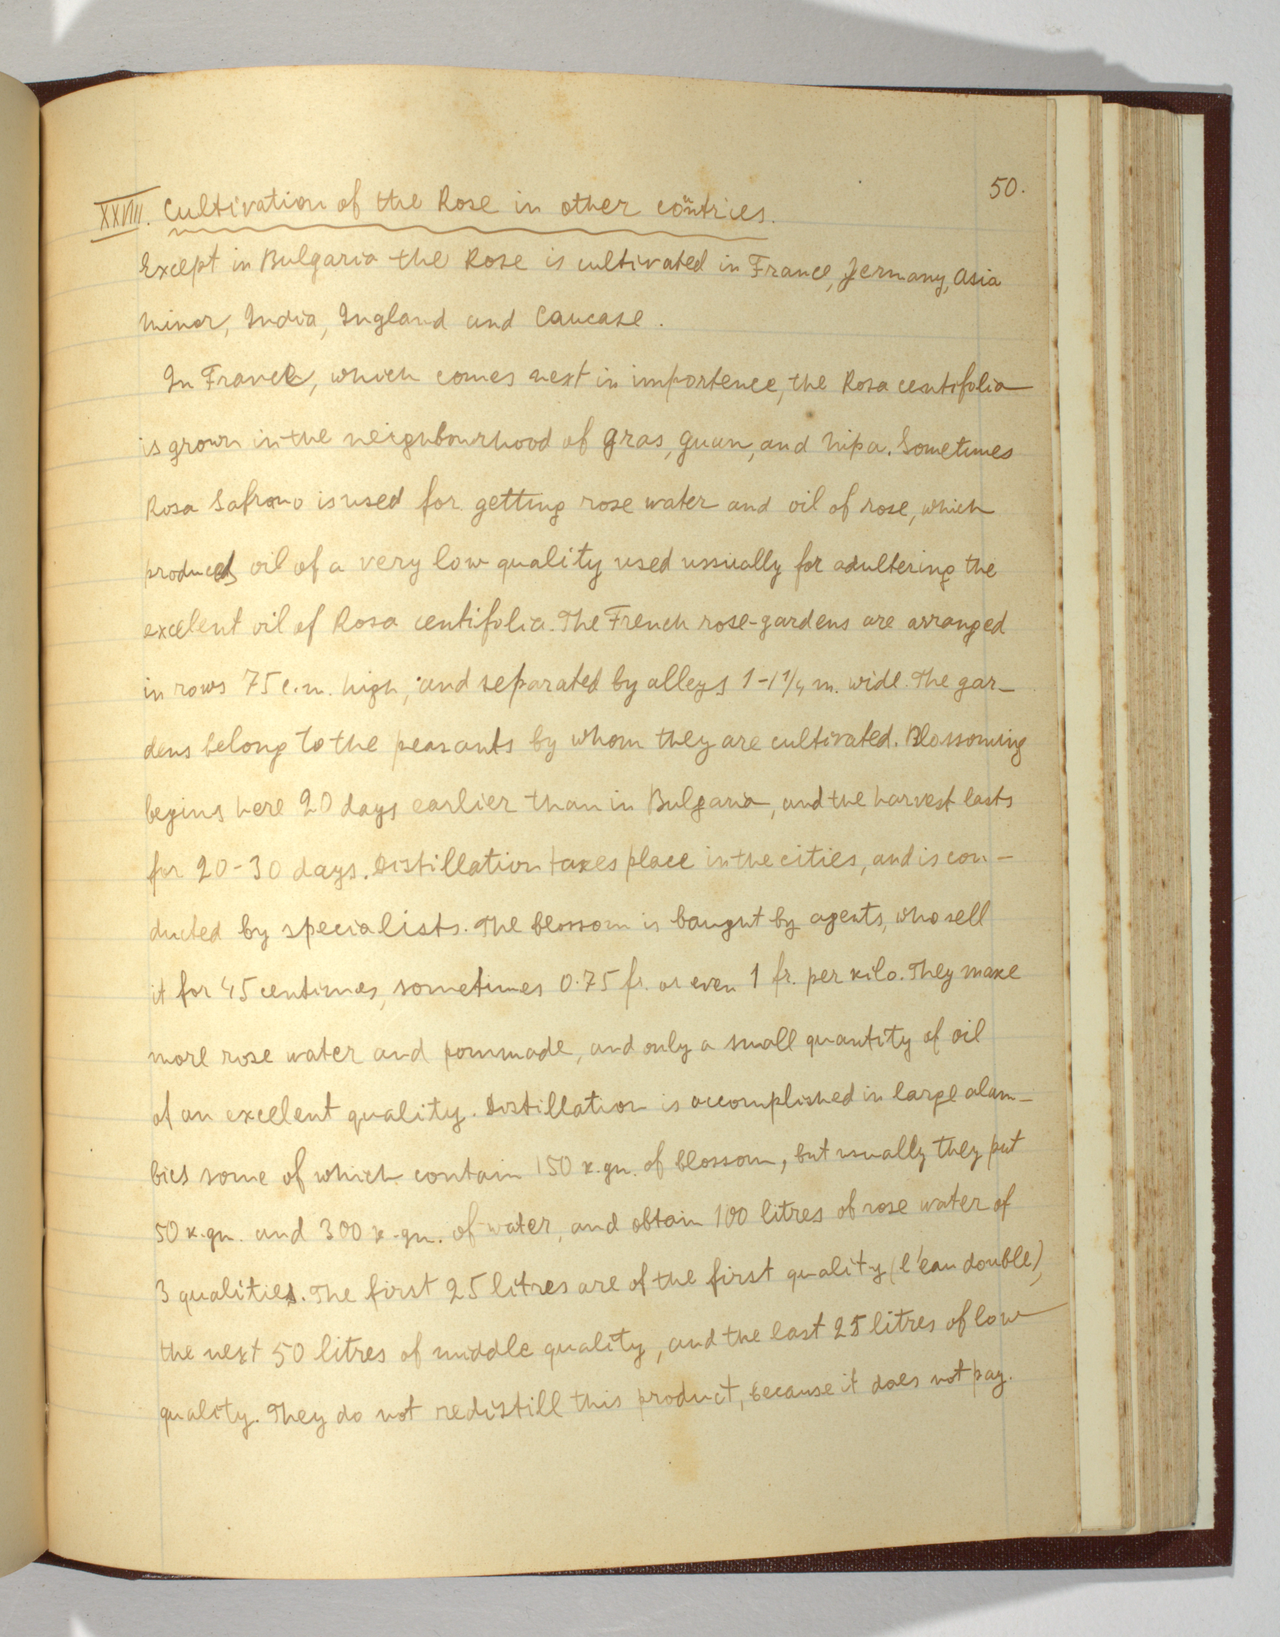 50.
XXVIII. Cultivation of the Rose in other countries.
Except in Bulgaria the Rose is cultivated in France, Jermany, Asia
Minor, India, Ingland and Caucase.
In France, which comes next in importence, the Rosa centifolia
is grown in the neighbourhood of Gras, Guan, and Nipa. Sometimes
Rosa Safrano is used for getting rose water and oil of rose, which
produces oil of a very low quality used ussually for adultering the
excelent oil of Rosa centifolia. The French rose-gardens are arranged
in rows 75 c.m. high, and separated by alleys 1-1 1/4 m. wide. The gar-
dens belong to the peasants by whom they are cultivated. Blossoming
begins here 20 days earlier than in Bulgaria, and the harvest lasts
for 20-30 days. Distillation takes place in the cities, and is con-
ducted by specialists. The blossom is baught by agents, who sell
it for 45 centimes, sometimes 0.75 fr. or even 1 fr. per kilo. They make
more rose water and pommade, and only a small quantity of oil
of an excelent quality. Distillation is accomplished in large alam-
bics some of which contain 150 k.gr. of blossom, but usually they put
50 k.gr. and 300 k.gr. of water, and obtain 100 litres of rose water of
3 qualities. The first 25 litres are of the first quality (l'eau double),
the next 50 litres of middle quality, and the last 25 litres of low
quality. They do not redistill this product, because it does not pay.